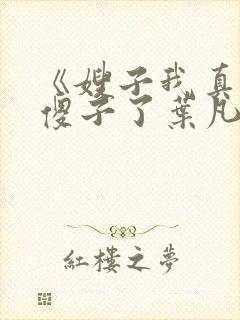 《嫂子我真
傻子了葉凡
紅樓之夢